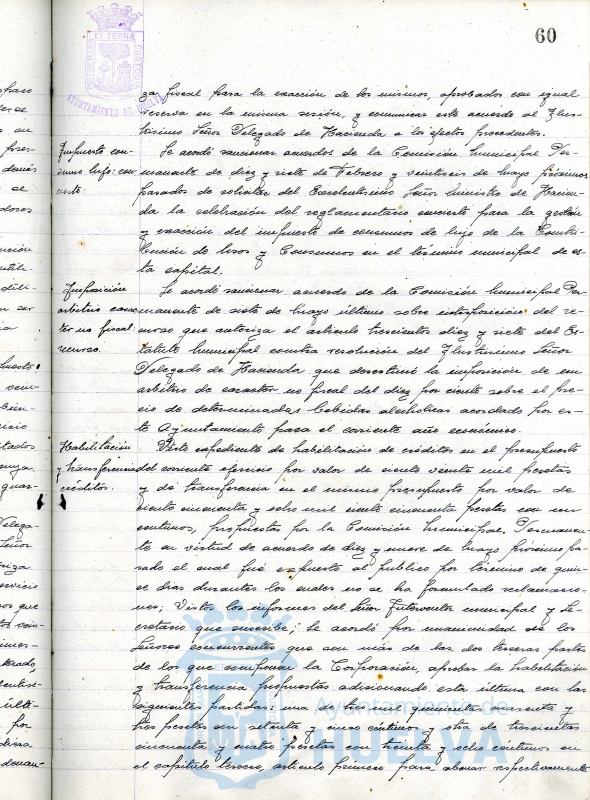 60
AYUNTAMIENTO DE HUELVA
za fiscal para la exacción de los mismos, aprobados con igual
reserva en la misma sesión, y comunicar este acuerdo al Ilus-
trísimo Señor Delegado de Hacienda a los efectos procedentes.
Impuesto con-
sumos lujo: con-
cierto.
Se acordó sancionar acuerdos de la Comisión Municipal Per-
manente de diez y siete de Febrero y veintiseis de Mayo próximos
pasados de solicitar del Excelentísimo Señor Ministro de Hacien-
da la celebración del reglamentario concierto para la gestión
y exacción del impuesto de consumos de lujo de la Contri-
bución de Usos y Consumos en el término municipal de es-
ta capital.
Imposición
arbitrio carac-
ter no fiscal:
recurso.
Se acordó sancionar acuerdo de la Comisión Municipal Per-
manente de siete de Mayo último sobre interposición del re-
curso que autoriza el artículo trescientos diez y siete del Es-
tatuto Municipal contra resolución del Ilustrísimo Señor
Delegado de Hacienda que desestimó la imposición de un
arbitrio de caracter no fiscal del diez por ciento sobre el pre-
cio de determinadas bebidas alcoholicas acordado por es-
te Ayuntamiento para el corriente año económico.
Habilitación
y transferencia
créditos.
Visto expediente de habilitación de créditos en el presupuesto
del corriente ejercicio por valor de ciento veinte mil pesetas
y de transferencia en el mismo presupuesto por valor de
ciento cincuenta y ocho mil ciento cincuenta pesetas con un
centimos, propuestas por la Comisión Municipal Permanen-
te en virtud de acuerdo de diez y nueve de Mayo próximo pa-
sado el cual fué expuesto al publico por término de quin-
ce dias durantes los cuales no se ha formulado reclamacio-
nes; Vistos los informes del Señor Interventor municipal y Se-
cretario que suscribe; Se acordó por unanimidad de los
Señores concurrentes que son más de las dos terceras partes
de los que componen la Corporación, aprobar la habilitación
y transferencia propuestas adicionando esta última con las
siguientes partidas: una de tres mil quinientas cuarenta y
tres pesetas con setenta y cinco centimos y otra de trescientas
cincuenta y cuatro pesetas con treinta y ocho centimos en
el capitulo tercero, artículo primero para abonar respectivamente
Ayuntamiento de
HUELVA